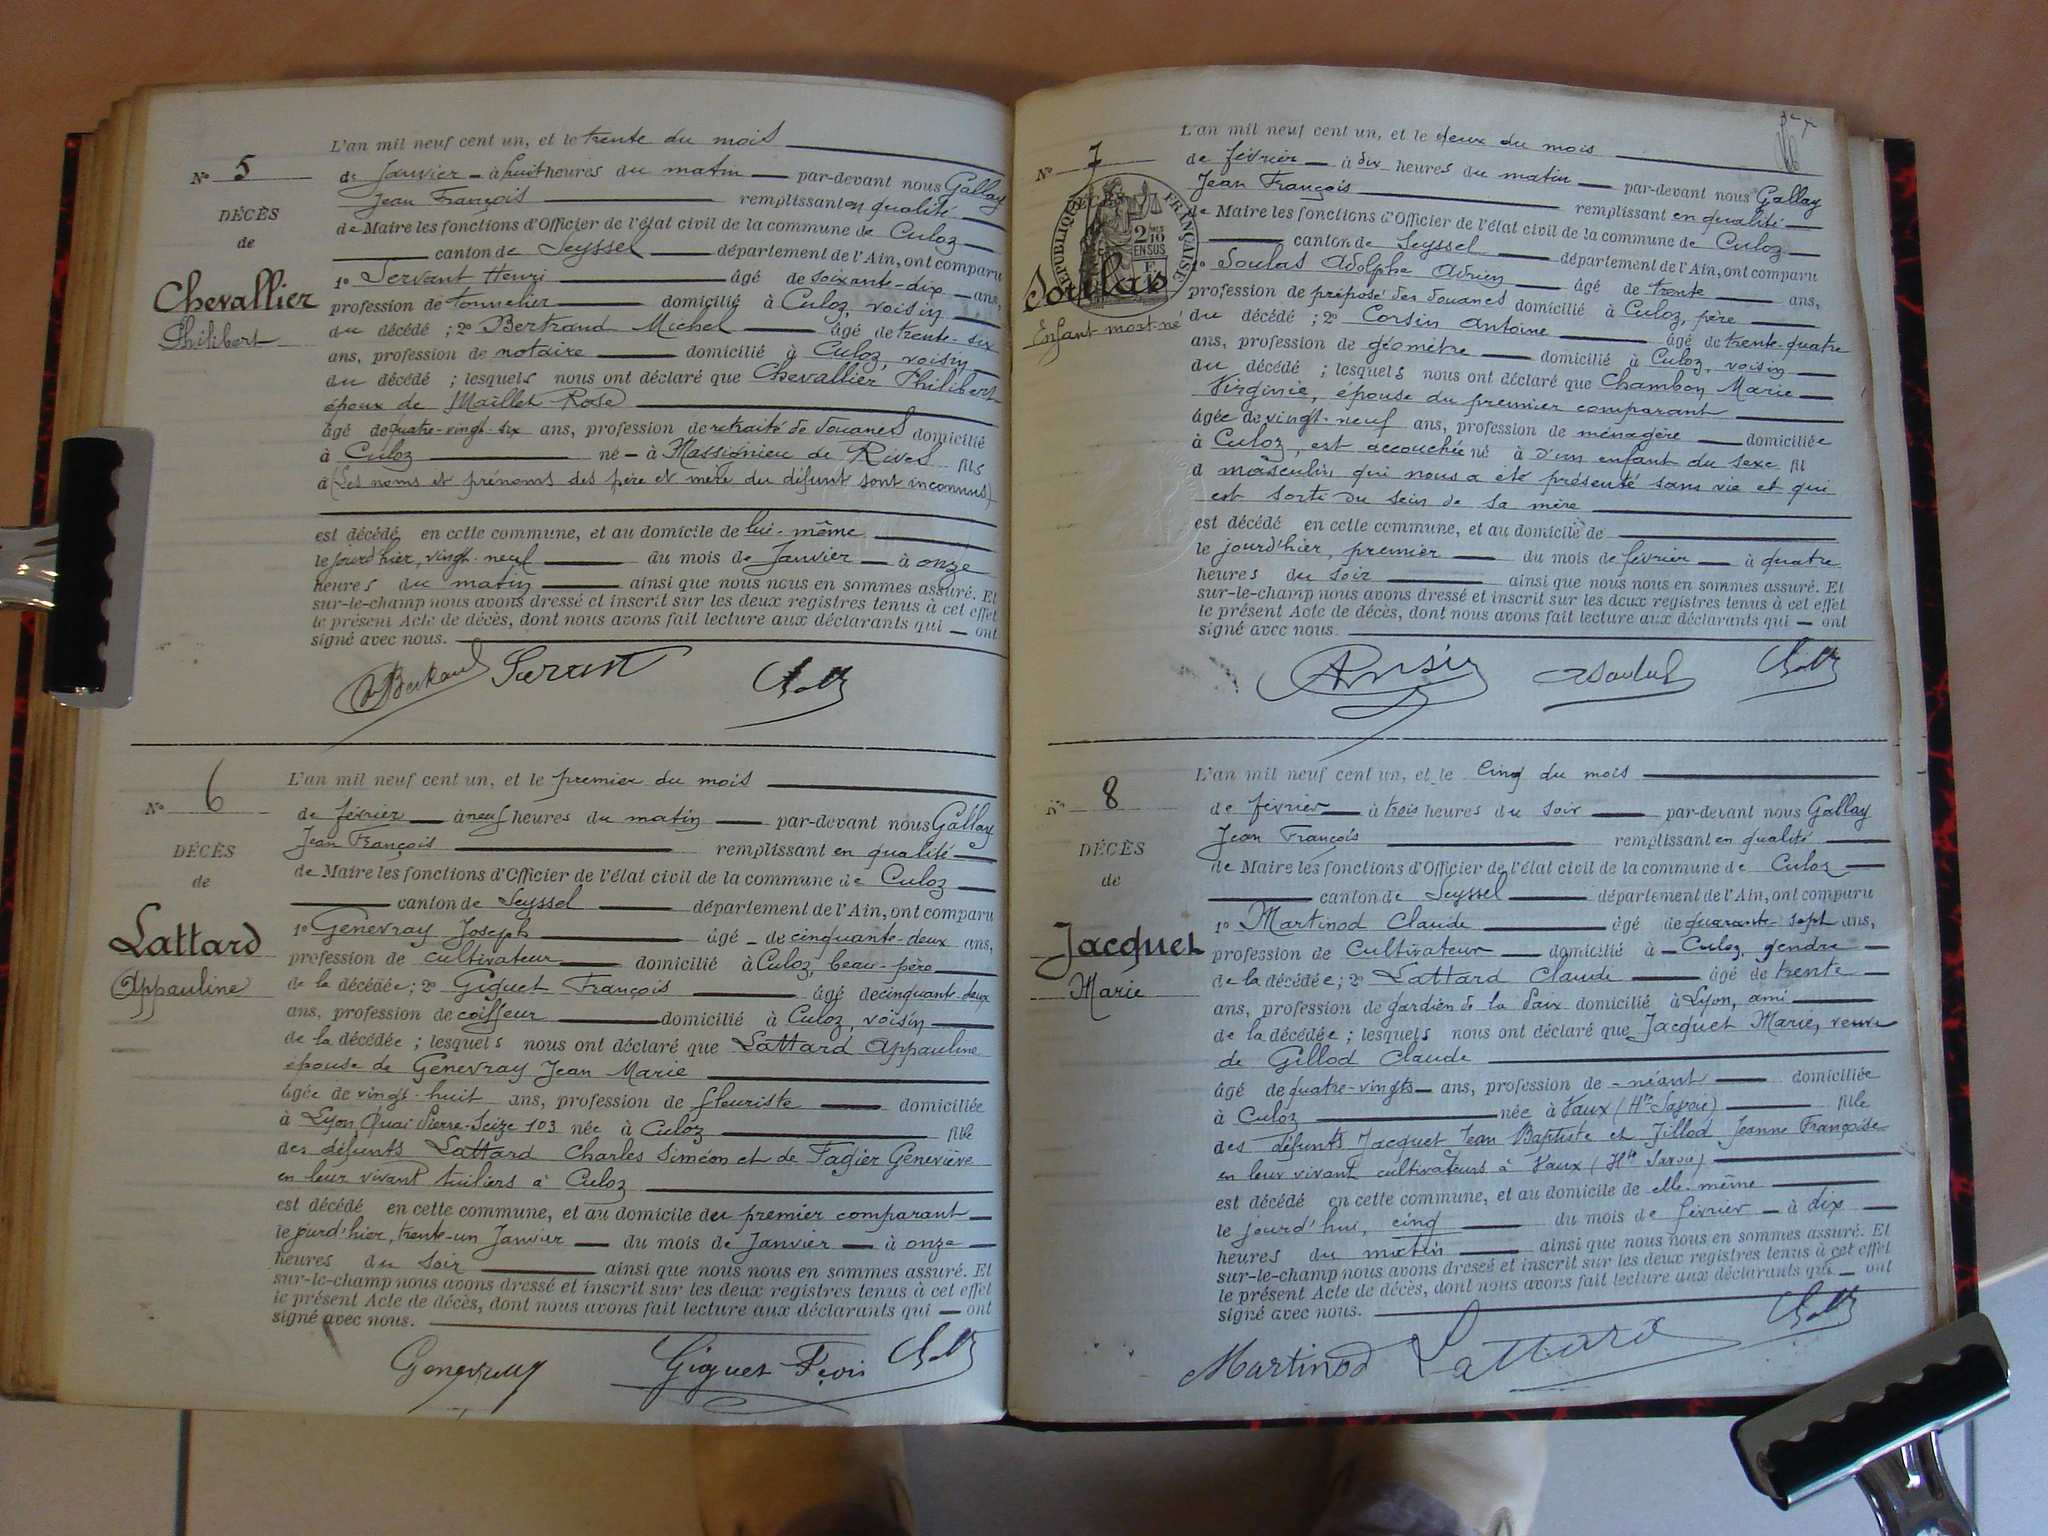 L'an mil neuf cent un, et le trente du mois
N° 5
de Janvier à huit heures du matin par-devant nous Gallay
Jean François remplissant en qualité
DÉCÈS
de Maire les fonctions d'Officier de l'état civil de la commune de Culoz
de
canton de Seyssel département de l'Ain, ont comparu
Chevallier
Philibert
1° Servant Henri âgé de soixante-dix ans,
profession de tonnelier domicilié à Culoz, voisin
du décédé ; 2° Bertrand Michel âgé de trente-six
ans, profession de notaire domicilié à Culoz, voisin
du décédé ; lesquels nous ont déclaré que Chevallier Philibert
époux de Maillet Rose
âgé de quatre-vingt-six ans, profession de retraité de douanes domicilié
à Culoz né à Massignieu de Rives fils
à (Les noms et prénoms des père et mère du défunt sont inconnus)
est décédé en cette commune, et au domicile de lui-même
le jourd'hier, vingt-neuf du mois de Janvier à onze
heures du matin ainsi que nous nous en sommes assuré. Et
sur-le-champ nous avons dressé et inscrit sur les deux registres tenus à cet effet
le présent Acte de décès, dont nous avons fait lecture aux déclarants qui ont
signé avec nous.
Bertrand Servant
L'an mil neuf cent un, et le premier du mois
N° 6
de février à neuf heures du matin par-devant nous Gallay
Jean François remplissant en qualité
DÉCÈS
de Maire les fonctions d'Officier de l'état civil de la commune de Culoz
de
canton de Seyssel département de l'Ain, ont comparu
Lattard
Appauline
1° Genevray Joseph âgé de cinquante-deux ans,
profession de cultivateur domicilié à Culoz, beau-père
de la décédée ; 2° Giguet François âgé de cinquante-deux
ans, profession de coiffeur domicilié à Culoz, voisin
de la décédée ; lesquels nous ont déclaré que Lattard Appauline
épouse de Genevray Jean Marie
âgée de vingt-huit ans, profession de fleuriste domiciliée
à Lyon Quai Pierre-Seize 103 née à Culoz fille
des défunts Lattard Charles Siméon et de Fagier Geneviève
en leur vivant tuiliers à Culoz
est décédé en cette commune, et au domicile du premier comparant
le jourd'hier, trente-un Janvier du mois de Janvier à onze
heures du soir ainsi que nous nous en sommes assuré. Et
sur-le-champ nous avons dressé et inscrit sur les deux registres tenus à cet effet
le présent Acte de décès, dont nous avons fait lecture aux déclarants qui ont
signé avec nous.
Genevray Giguet Fçois
L'an mil neuf cent un, et le deux du mois
N° 7
de février à dix heures du matin par-devant nous Gallay
Jean François remplissant en qualité
RÉPUBLIQUE FRANÇAISE
2/10 EN SUS
de Maire les fonctions d'Officier de l'état civil de la commune de Culoz
canton de Seyssel département de l'Ain, ont comparu
Soulas
Enfant mort-né
1° Soulas Adolphe Adrien âgé de trente ans,
profession de préposé des douanes domicilié à Culoz, père
du décédé ; 2° Corsin Antoine âgé de trente-quatre
ans, profession de géomètre domicilié à Culoz, voisin
du décédé ; lesquels nous ont déclaré que Chambon Marie
Virginie, épouse du premier comparant
âgée de vingt-neuf ans, profession de ménagère domiciliée
à Culoz, est accouchée né à d'un enfant du sexe fil
d masculin qui nous a été présenté sans vie et qui
est sorti du sein de sa mère
est décédé en cette commune, et au domicile de
le jourd'hier, premier du mois de février à quatre
heures du soir ainsi que nous nous en sommes assuré. Et
sur-le-champ nous avons dressé et inscrit sur les deux registres tenus à cet effet
le présent Acte de décès, dont nous avons fait lecture aux déclarants qui ont
signé avec nous.
ASoulas
L'an mil neuf cent un, et le cinq du mois
N° 8
de février à trois heures du soir par-devant nous Gallay
Jean François remplissant en qualité
DÉCÈS
de Maire les fonctions d'Officier de l'état civil de la commune de Culoz
de
canton de Seyssel département de l'Ain, ont comparu
Jacquet
Marie
1° Martinod Claude âgé de quarante-sept ans,
profession de cultivateur domicilié à Culoz, gendre
de la décédée ; 2° Lattard Claude âgé de trente
ans, profession de gardien de la Paix domicilié à Lyon, ami
de la décédée ; lesquels nous ont déclaré que Jacquet Marie, veuve
de Gillod Claude
âgé de quatre-vingts ans, profession de néant domiciliée
à Culoz née à Vaux (Hte Savoie) fille
des défunts Jacquet Jean Baptiste et Jillod Jeanne Françoise
en leur vivant cultivateurs à Vaux (Hte Savoie)
est décédé en cette commune, et au domicile de elle-même
le jourd'hui, cinq du mois de février à dix
heures du matin ainsi que nous nous en sommes assuré. Et
sur-le-champ nous avons dressé et inscrit sur les deux registres tenus à cet effet
le présent Acte de décès, dont nous avons fait lecture aux déclarants qui ont
signé avec nous.
Martinod Lattard